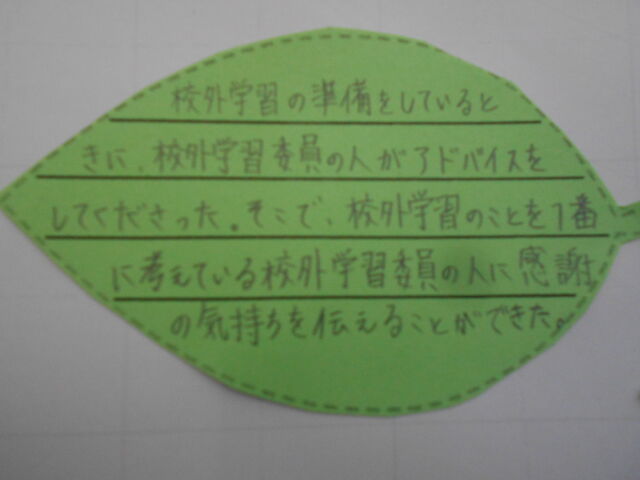 校外学習の準備をしていると
きに、校外学習委員の人がアドバイスを
してくださった。そこで、校外学習のことを1番
に考えている校外学習委員の人に感謝
の気持ちを伝えることができた。